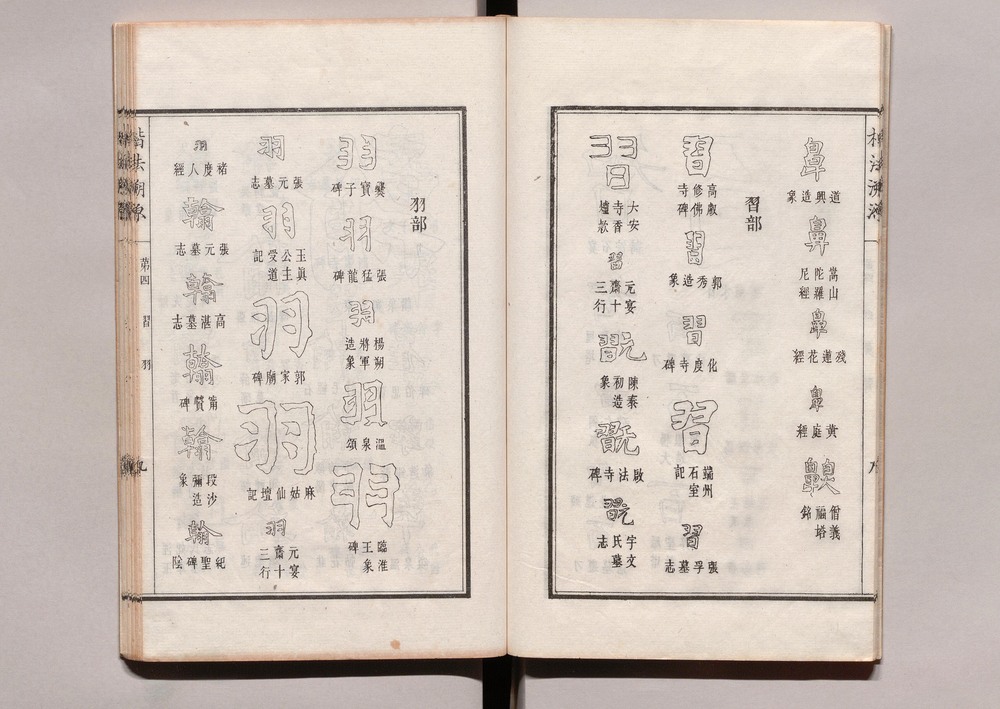 鼻
道興造象
鼻
嵩山陀羅尼經
鼻
殘蓮花經
鼻
黃庭經
齅
僧義福塔銘
習部
習
高叡修佛寺碑
習
郭秀造象
習
化度寺碑
習
端州石室記
習
張孚墓志
習
大安寺香壇款
習
元宴齋十三行
翫
陳秦初造象
翫
啟法寺碑
翫
宇文氏墓志
羽部
羽
爨寶子碑
羽
張猛龍碑
羽
楊朔將軍造象
羽
溫泉頌
羽
臨淮王象碑
羽
張元墓志
羽
玉眞公主受道記
羽
郭家廟碑
羽
麻姑仙壇記
羽
元宴齋十三行
羽
褚度人經
翰
張元墓志
翰
高湛墓志
翰
甯贙碑
翰
段沙彌造象
翰
紀聖碑陰
楷法溯源
第四
習
羽
九